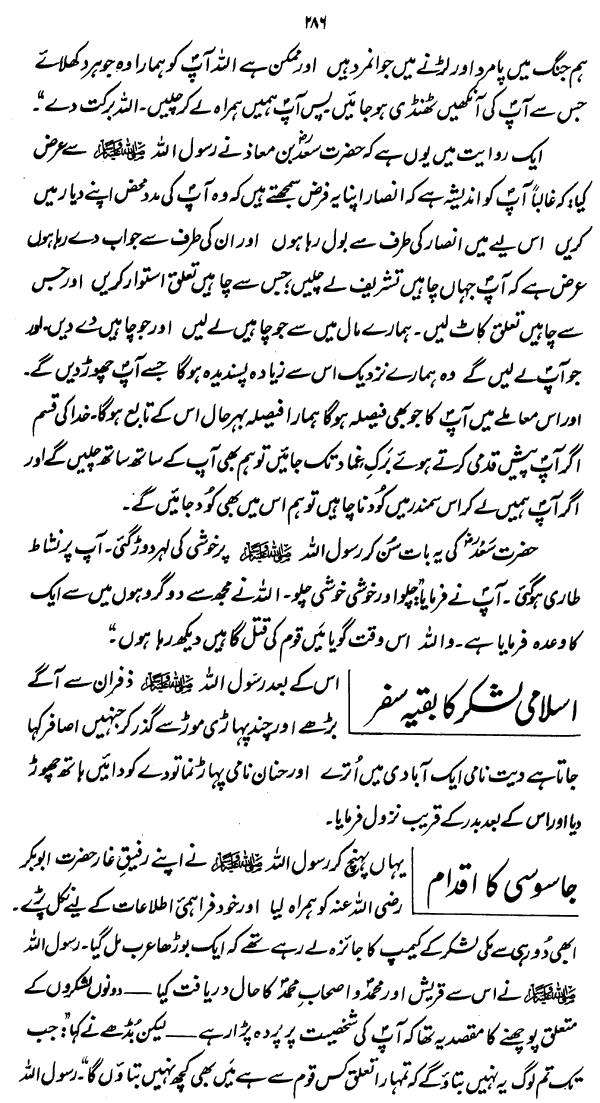 ۲۸۶
ہم جنگ میں پامرد اور لڑنے میں جوانمرد ہیں اور ممکن ہے اللہ آپؐ کو ہمارا وہ جوہر دکھلائے
جس سے آپؐ کی آنکھیں ٹھنڈی ہو جائیں پس آپؐ ہمیں ہمراہ لے کر چلیں۔ اللہ برکت دے"۔
ایک روایت میں یوں ہے کہ حضرت سعدؓ بن معاذ نے رسول اللہ ﷺ سے عرض
کیا: کہ غالباً آپؐ کو اندیشہ ہے کہ انصار اپنا یہ فرض سمجھتے ہیں کہ وہ آپؐ کی مدد محض اپنے دیار میں
کریں اس لیے میں انصار کی طرف سے بول رہا ہوں اور ان کی طرف سے جواب دے رہا ہوں
عرض ہے کہ آپؐ جہاں چاہیں تشریف لے چلیں، جس سے چاہیں تعلق استوار کریں اور جس
سے چاہیں تعلق کاٹ لیں۔ ہمارے مال میں سے جو چاہیں لے لیں اور جو چاہیں دے دیں۔ اور
جو آپؐ لے لیں گے وہ ہمارے نزدیک اس سے زیادہ پسندیدہ ہوگا جسے آپؐ چھوڑ دیں گے۔
اور اس معاملے میں آپؐ کا جو بھی فیصلہ ہوگا ہمارا فیصلہ بہرحال اس کے تابع ہوگا۔ خدا کی قسم
اگر آپؐ پیش قدمی کرتے ہوئے برکِ غماد تک جائیں تو ہم بھی آپ کے ساتھ ساتھ چلیں گے اور
اگر آپؐ ہمیں لے کر اس سمندر میں کودنا چاہیں تو ہم اس میں بھی کُود جائیں گے۔
حضرت سعدؓ کی یہ بات سُن کر رسول اللہ ﷺ پر خوشی کی لہر دوڑ گئی۔ آپ پر نشاط
طاری ہو گئی۔ آپؐ نے فرمایا: "چلو اور خوشی خوشی چلو۔ اللہ نے مجھ سے دو گروہوں میں سے ایک
کا وعدہ فرمایا ہے۔ واللہ اس وقت گویا میں قوم کی قتل گاہیں دیکھ رہا ہوں۔"
اسلامی لشکر کا بقیہ سفر
اس کے بعد رسول اللہ ﷺ ذفران سے آگے
بڑھے اور چند پہاڑی موڑ سے گذر کر جنہیں اصافر کہا
جاتا ہے دیت نامی ایک آبادی میں اُترے اور حنان نامی پہاڑ نما تودے کو دائیں ہاتھ چھوڑ
دیا اور اس کے بعد بدر کے قریب نزول فرمایا۔
جاسوسی کا اقدام
یہاں پہنچ کر رسول اللہ ﷺ نے اپنے رفیقِ غار حضرت ابوبکر
رضی اللہ عنہ کو ہمراہ لیا اور خود فراہمیٔ اطلاعات کے لیے نکل پڑے۔
ابھی دُور ہی سے مکی لشکر کے کیمپ کا جائزہ لے رہے تھے کہ ایک بوڑھا عرب مل گیا۔ رسول اللہ
ﷺ نے اس سے قریش اور محمدؐ و اصحابِ محمدؐ کا حال دریافت کیا — دونوں لشکروں کے
متعلق پوچھنے کا مقصد یہ تھا کہ آپؐ کی شخصیت پر پردہ پڑا رہے — لیکن بُڈھے نے کہا: "جب
تک تم لوگ یہ نہیں بتاؤ گے کہ تمہارا تعلق کس قوم سے ہے میں بھی کچھ نہیں بتاؤں گا"۔ رسول اللہ